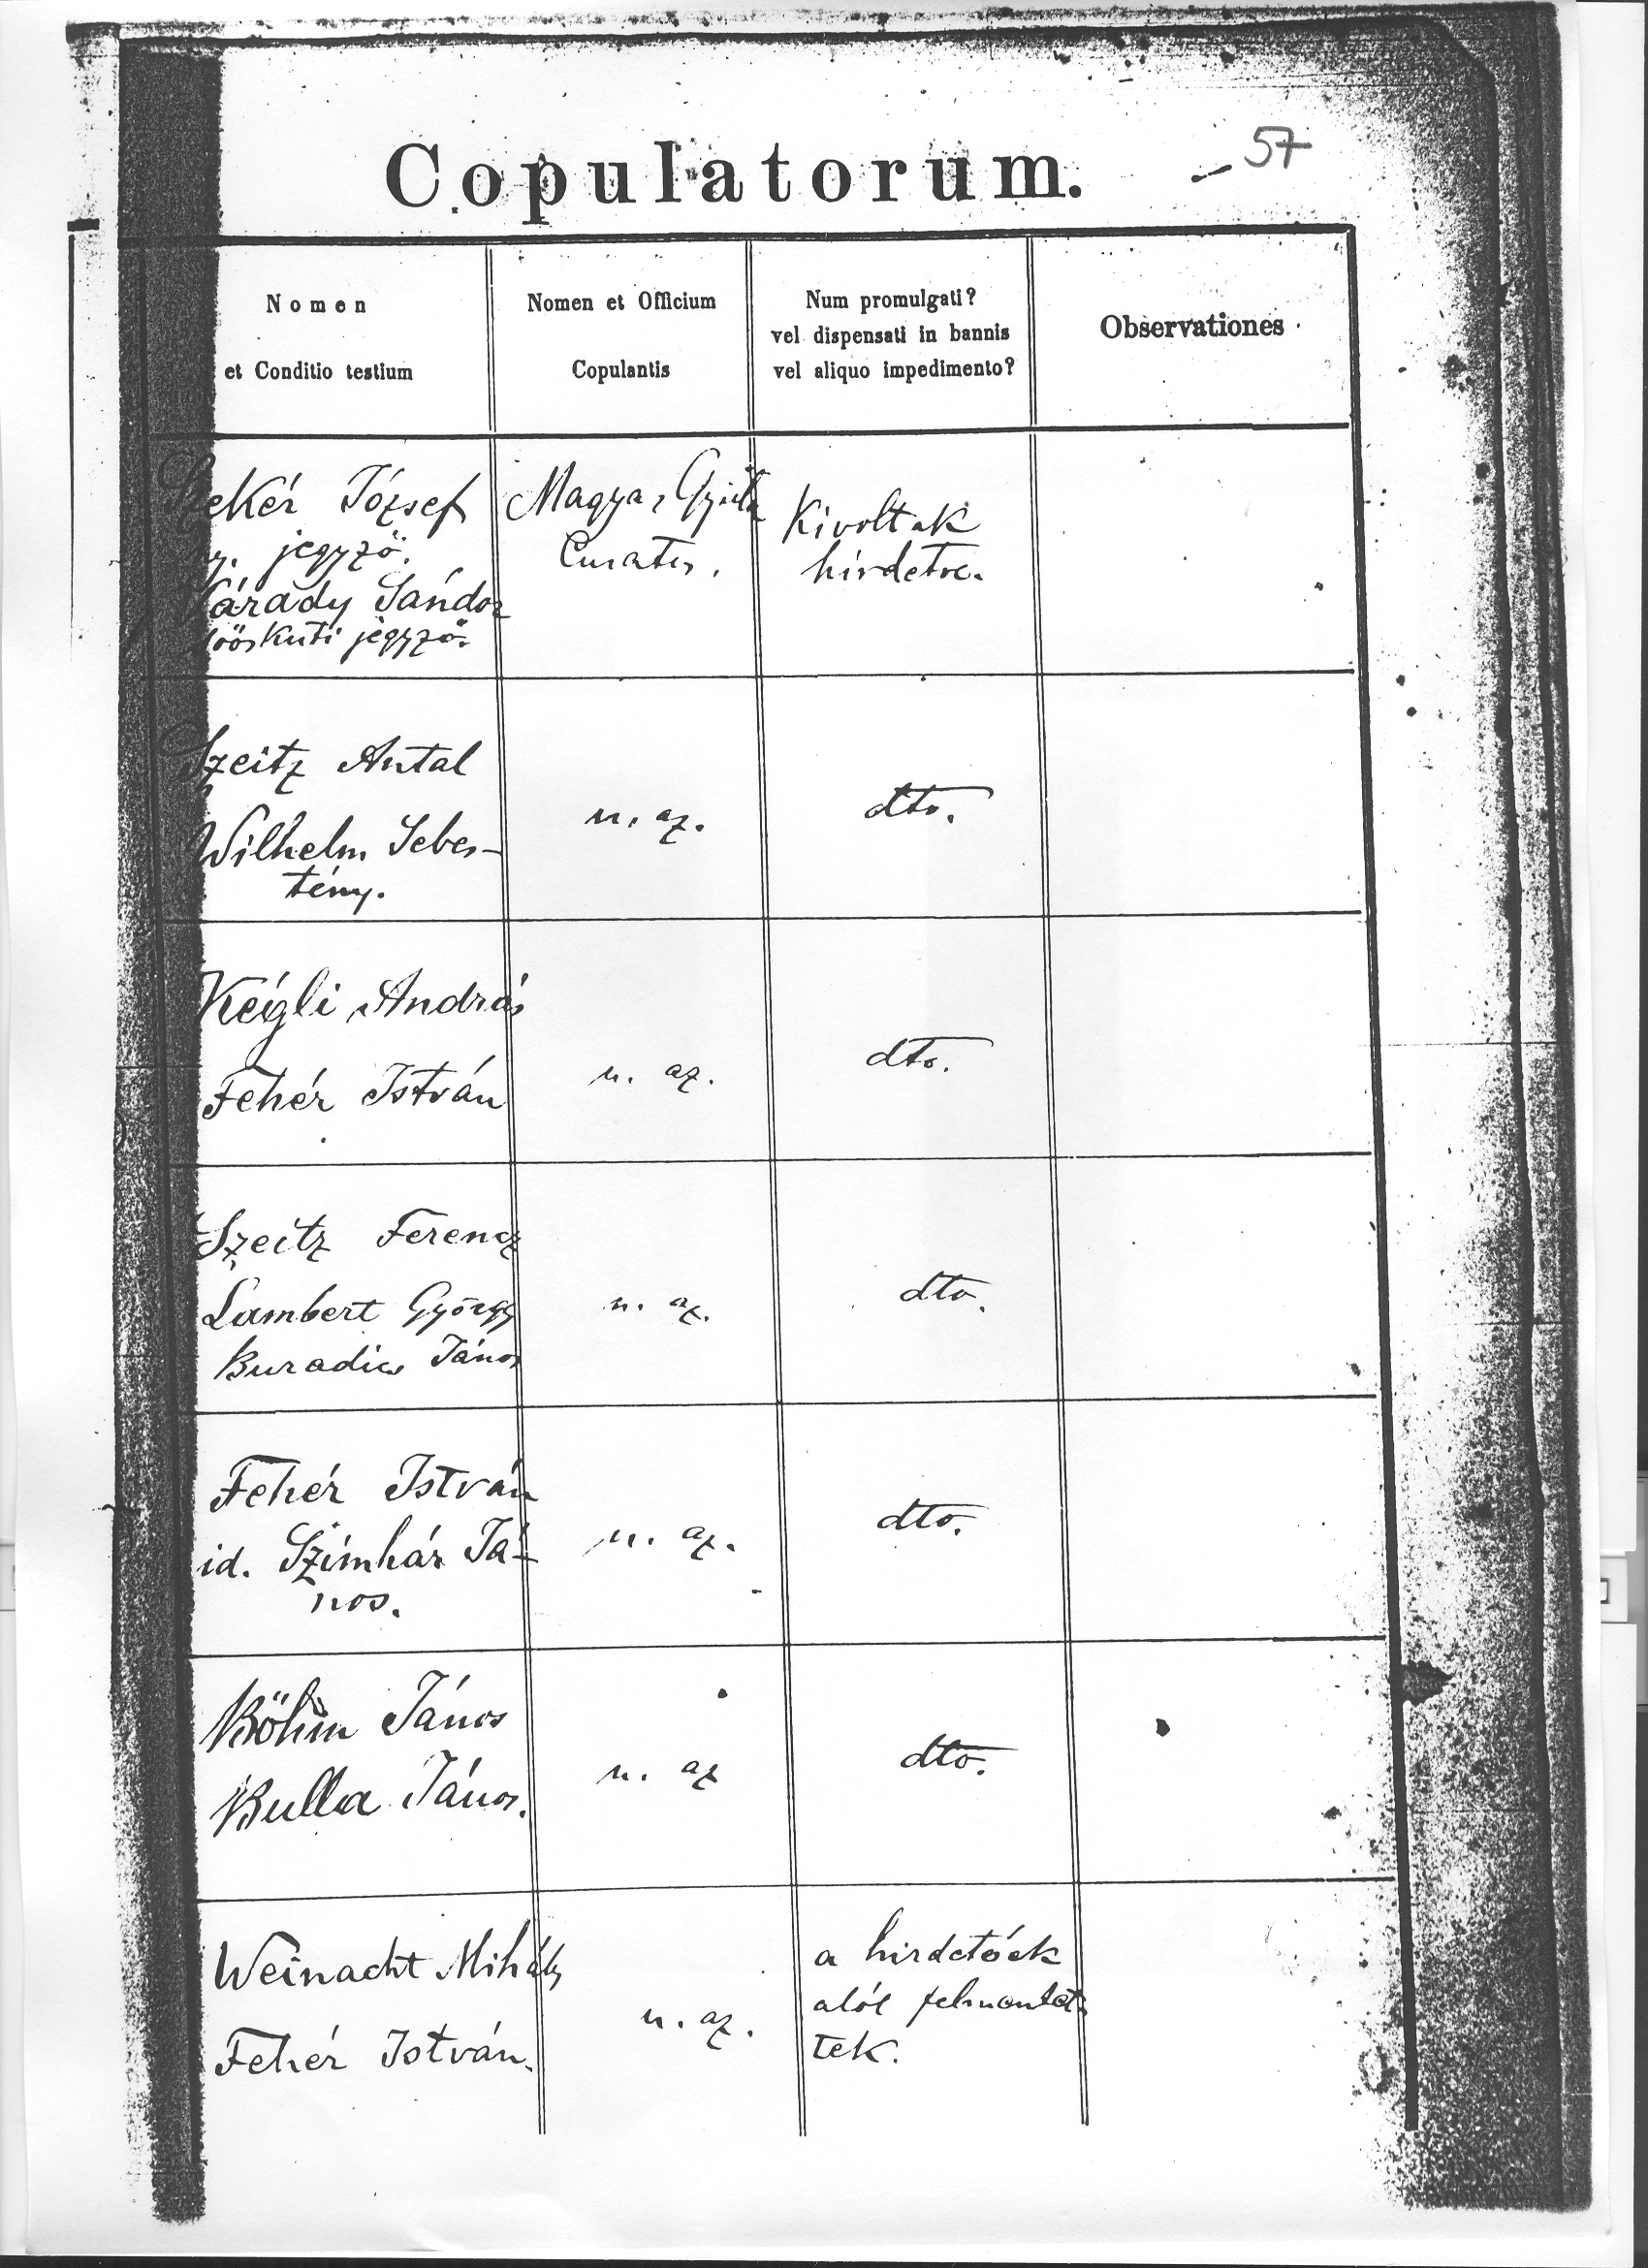 Copulatorum.
57
Nomen
et Conditio testium
Nomen et Officium
Copulantis
Num promulgati?
vel dispensati in bannis
vel aliquo impedimento?
Observationes
József
jegyző.
Magyar Gyula
Curatus.
Kivoltak
hirdetve.
Várady Sándor
jegyző.
Szeitz Antal
Wilhelm Sebes-
tény.
u. az.
dto.
Kégli András
Fehér István
u. az.
dto.
Szeitz Ferencz
Lambert György
Buradics János
u. az.
dto.
Fehér István
id. Szimhár Já-
nos.
u. az.
dto.
Böhm János
Bulla János.
u. az
dto.
Weinacht Mihály
Fehér István.
u. az.
a hirdetések
alól felmentet-
tek.